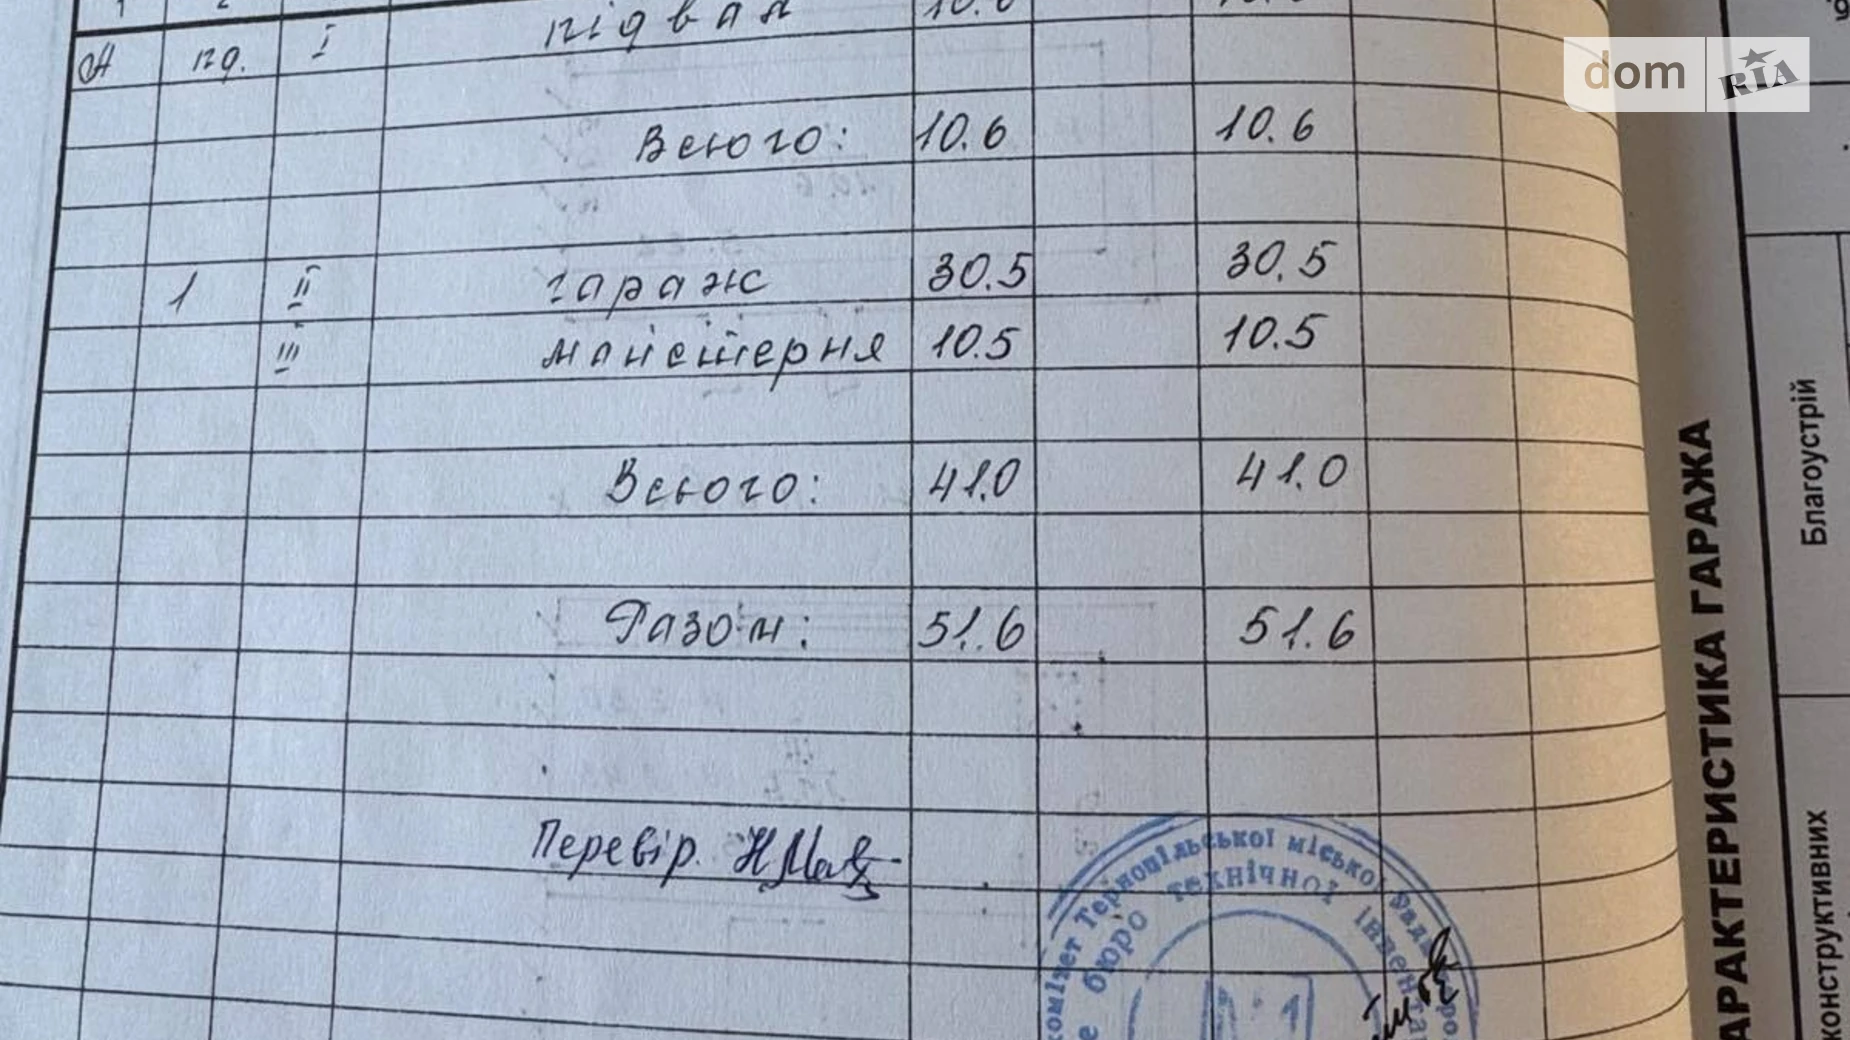 1 2
підвал 10.6 10.6
А пд. I
dom RIA
Всього: 10.6 10.6
1 II гараж 30.5 30.5
III майстерня 10.5 10.5
Всього: 41.0 41.0
Разом: 51.6 51.6
Перевір.
комітет Тернопільської міської ради
бюро технічної інвента
№1
АРАКТЕРИСТИКА ГАРАЖА
Благоустрій
конструктивних